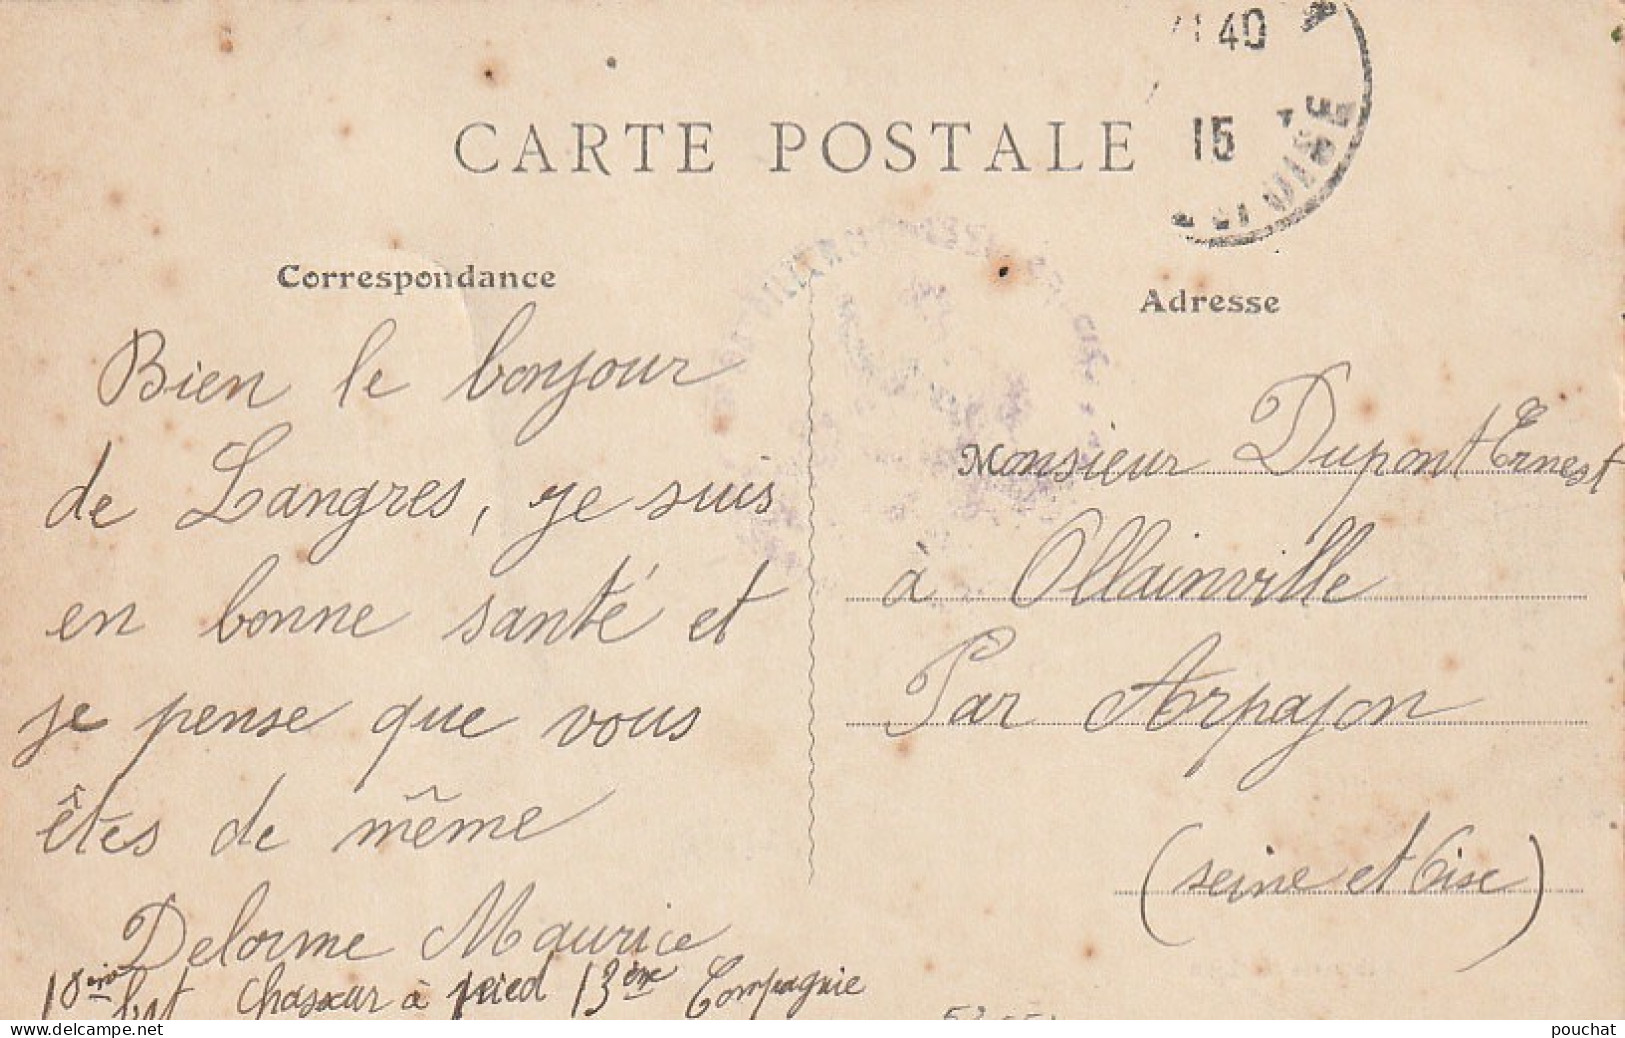 CARTE POSTALE
40
15
Correspondance
Bien le bonjour
de Langres, je suis
en bonne santé et
je pense que vous
êtes de même
Delorme Maurice
10ème Bat Chasseur à pied 13ème Compagnie
Adresse
Monsieur Dupont Ernest
à Ollainville
Par Arpajon
(seine et Oise)
delcampe.net
pouchat